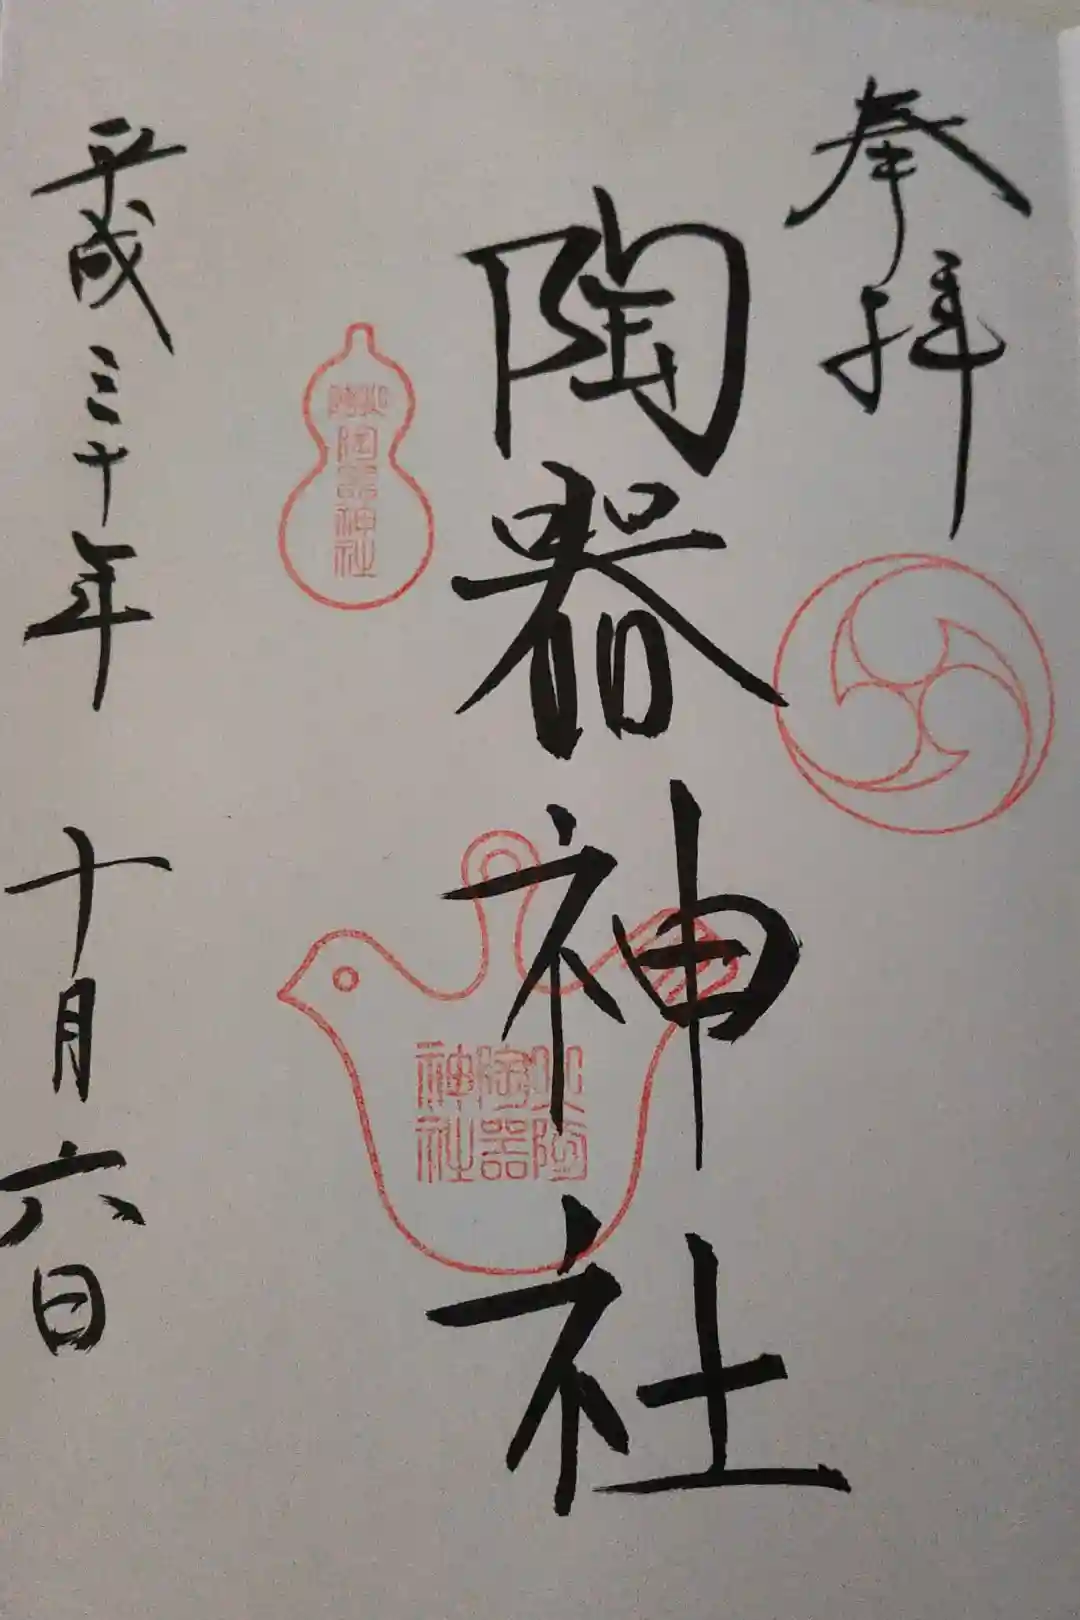 奉拝
陶器神社
陶器神社
火防
陶器
神社
平成三十年 十月六日